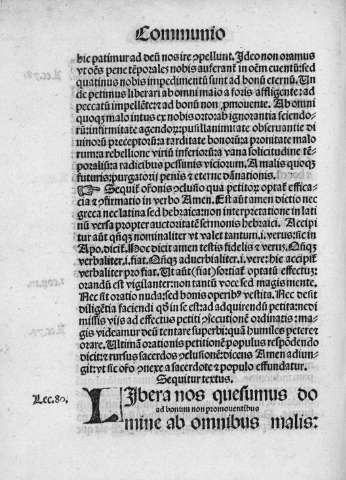 Communio
hic patimur ad deũ nos ire cõpellunt. Ideo non oramus
vt oẽs pene tẽporales nobis auferant̃ in oẽm euentũ: sed
quatinus nobis impedimẽtũ sunt ad bonũ eternũ. Un
de petimus liberari ab omni malo a foris affligente: ad
peccatũ impellẽte: et ad bonũ non ꝓmouente. Ab omni
quoqꝫ malo intus ex nobis orto: ab ignorantia sciendo-
rũ: infirmitate agendoꝝ: pusillanimitate obseruantie di
uinorũ preceptorũ: a tarditate bonorũ: a pronitate malo
rum: a rebellione viriũ inferiorũ: a vana solicitudine tẽ-
poraliũ: a radicibus pessimis viciorum. A malis quoqꝫ
futuris: purgatorij penis et eterne dãnationis.
☞ Sequit̃ or̃onis cõclusio qua petitoꝝ optat̃ effica-
cia et cõfirmatio in verbo Amen. Est aũt amen dictio nec
greca nec latina sed hebraica: non interpretatione in lati
nũ versa propter auctoritatẽ sermonis hebraici. Accipi
tur aũt qñqꝫ nominaliter vt valet tantum. i. verus: sic in
Apo. dicit̃. Hoc dicit amen testis fidelis et verus. Qñqꝫ
verbaliter. i. fiat. Qñqꝫ aduerbialiter. i. vere: hic accipit̃
verbaliter pro fiat. Ut aũt sortiat̃ optatũ effectũ:
orandũ est vigilanter: non tantũ voce sed magis mente.
Nec sit oratio nuda: sed bonis operibꝰ vestita. Nec desit
diligẽtia faciendi qđ in se est: ad adquirendũ petita: ne di
missis vijs ad effectus petiti cõsecutionẽ ordinatis: ma-
gis videamur deũ tentare superbi: quã humiles petere et
orare. Ultimã orationis petitionẽ populus respõdendo
dicit: et rursus sacerdos cõclusionẽ: dicens Amen adiun-
git: vt sic or̃o cõnexa a sacerdote et populo effundatur.
Sequitur textus.
Lec. 80.
LIbera nos quesumus do
ad bonum non promouentibus
mine ab omnibus malis: